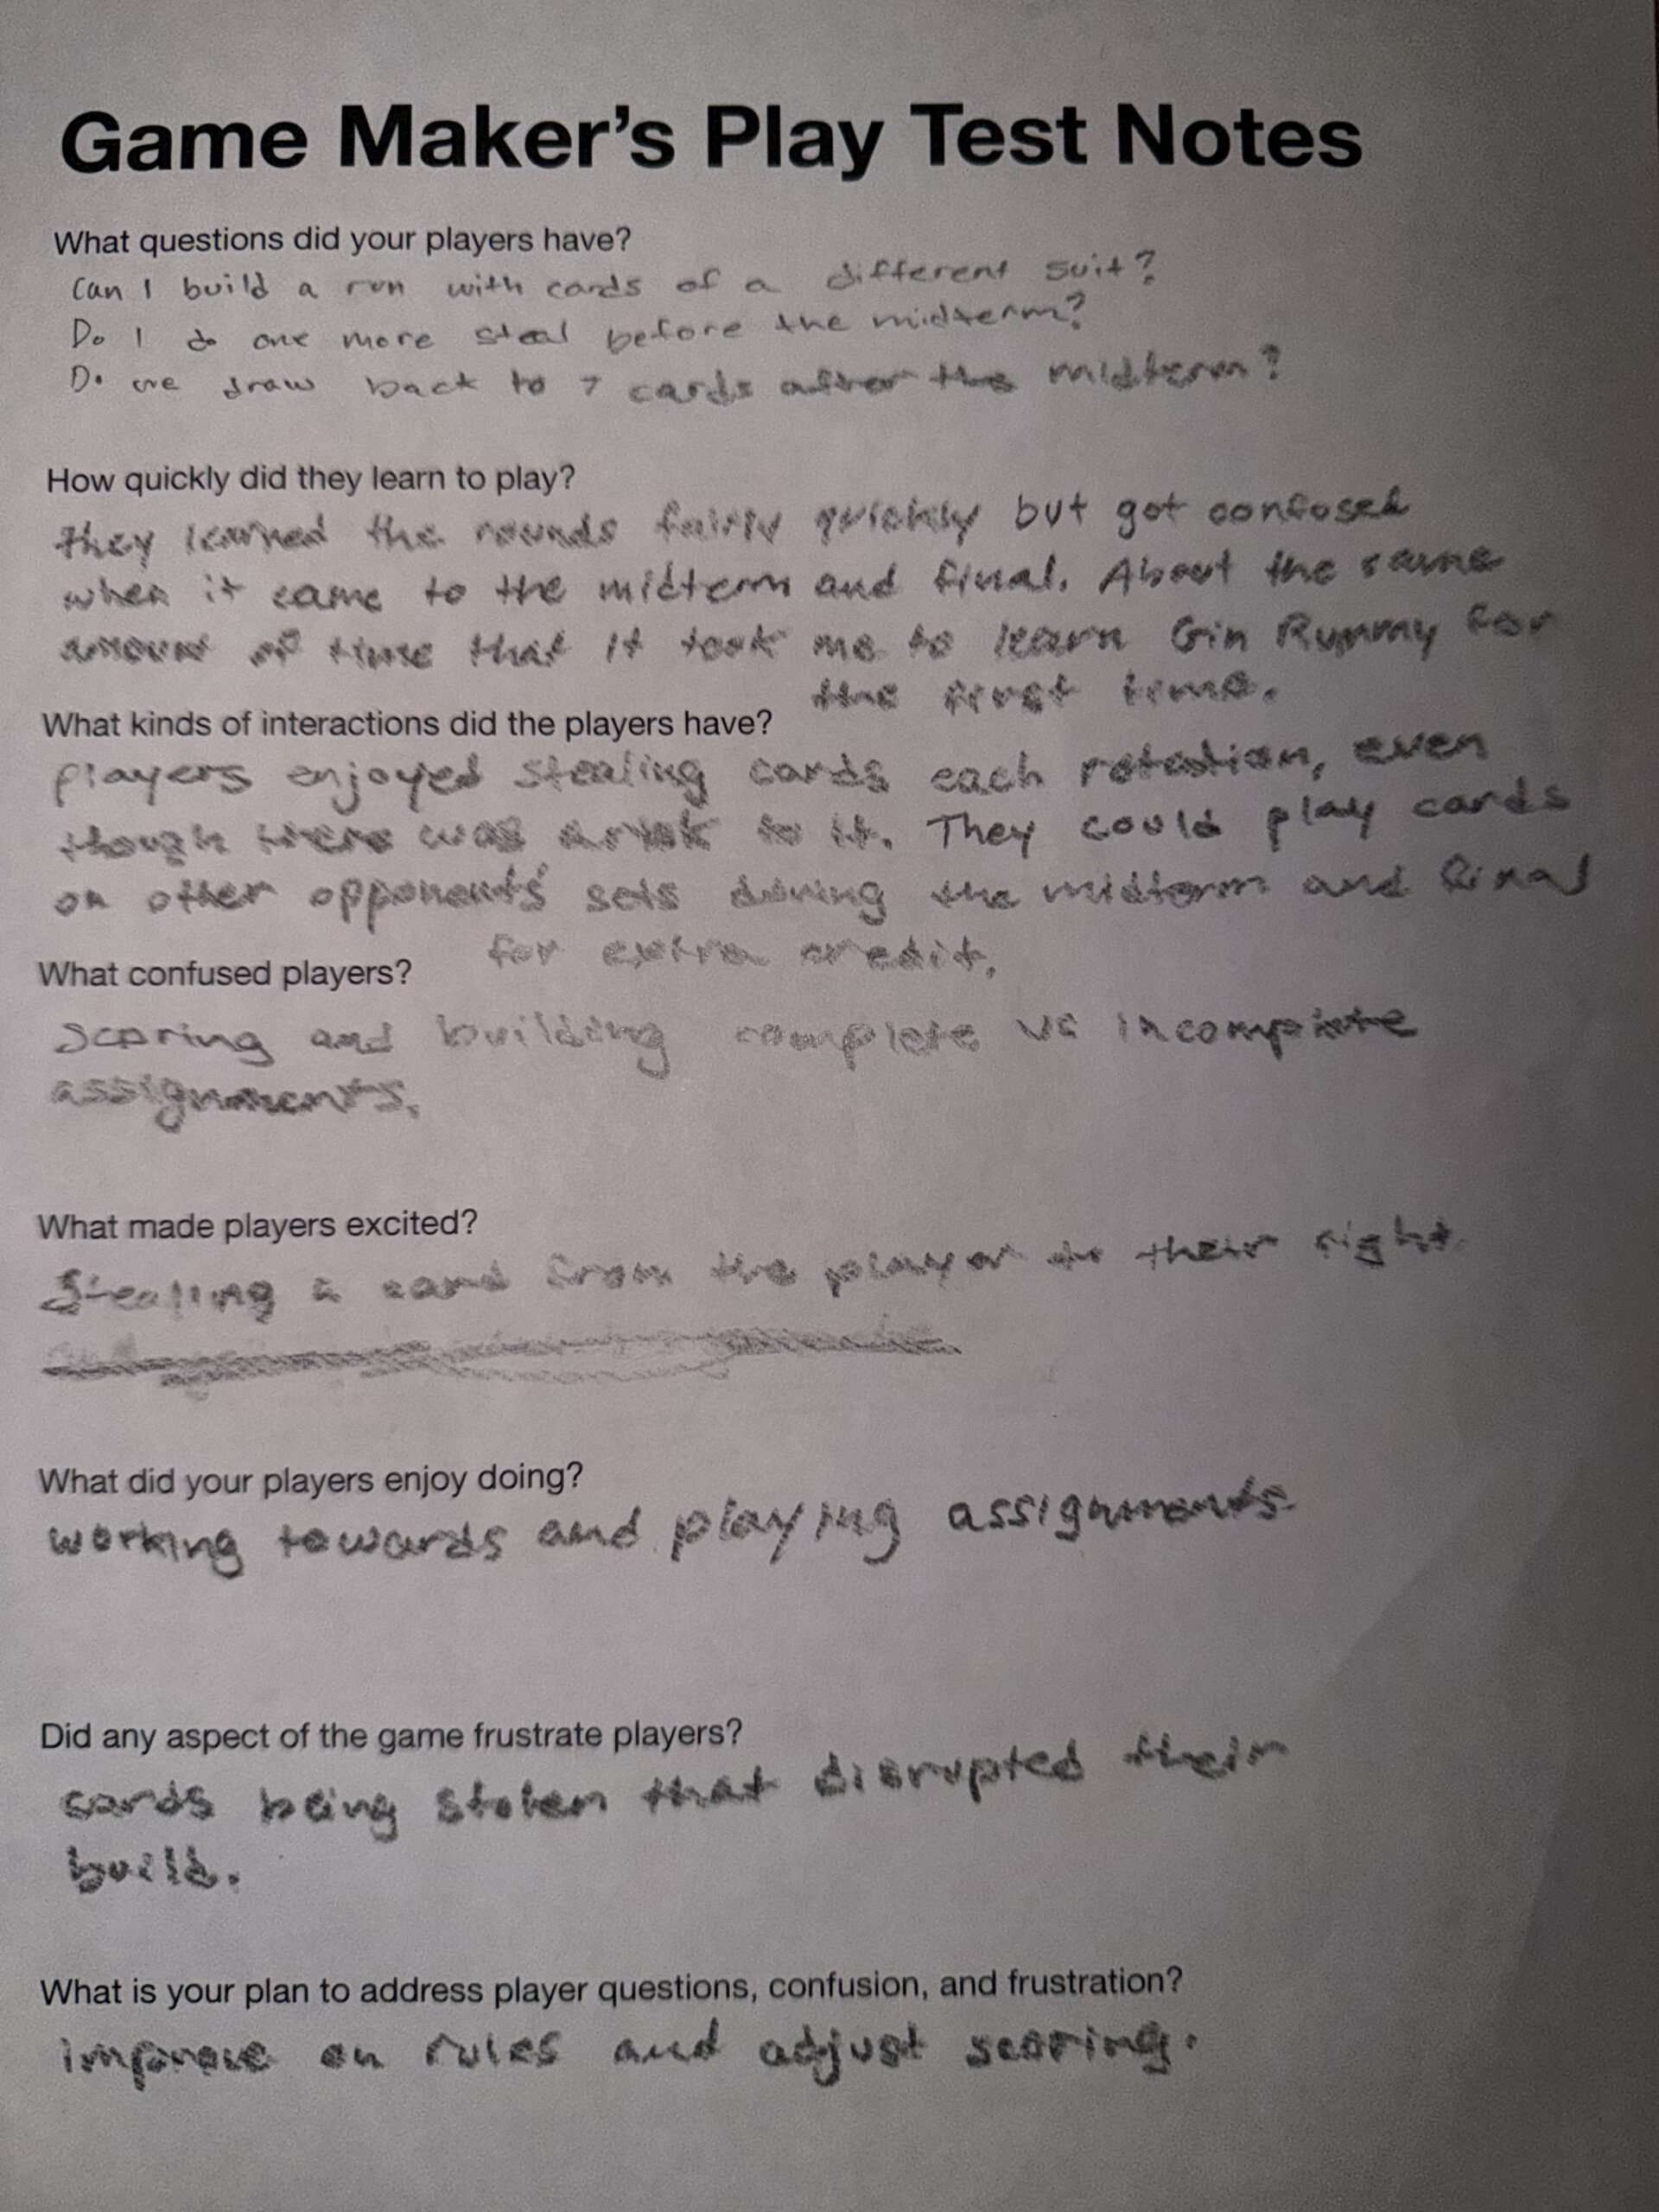 Game Maker's Play Test Notes
What questions did your players have?
Can I build a run with cards of a different suit?
Do I do one more steal before the midterm?
Do we draw back to 7 cards after the midterm?
How quickly did they learn to play?
they learned the rounds fairly quickly but got confused
when it came to the midterm and final. About the same
amount of time that it took me to learn Gin Rummy for
the first time.
What kinds of interactions did the players have?
players enjoyed stealing cards each rotation, even
though there was a risk to it. They could play cards
on other opponents' sets during the midterm and final
for extra credit.
What confused players?
Scoring and building complete vs incomplete
assignments.
What made players excited?
Stealing a card from the player to their right
What did your players enjoy doing?
working towards and playing assignments.
Did any aspect of the game frustrate players?
cards being stolen that disrupted their
build.
What is your plan to address player questions, confusion, and frustration?
improve on rules and adjust scoring.